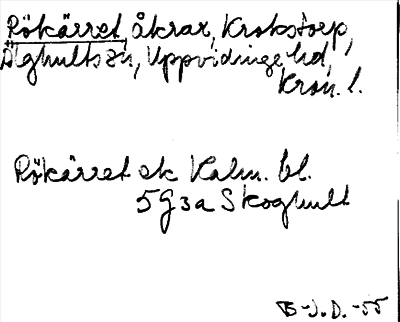 Rökärret, åkrar, Krokstorp,
Älghults sn, Uppvidinge hd,
Kron. l.
Rökärret ek Kalm. bl.
5G3a Skoghult
B-J.D. -55